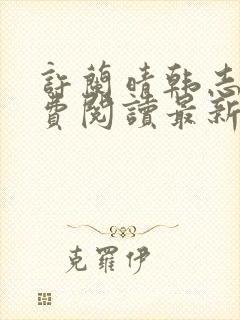 許蘭晴韩志
費閱讀最新
克羅伊